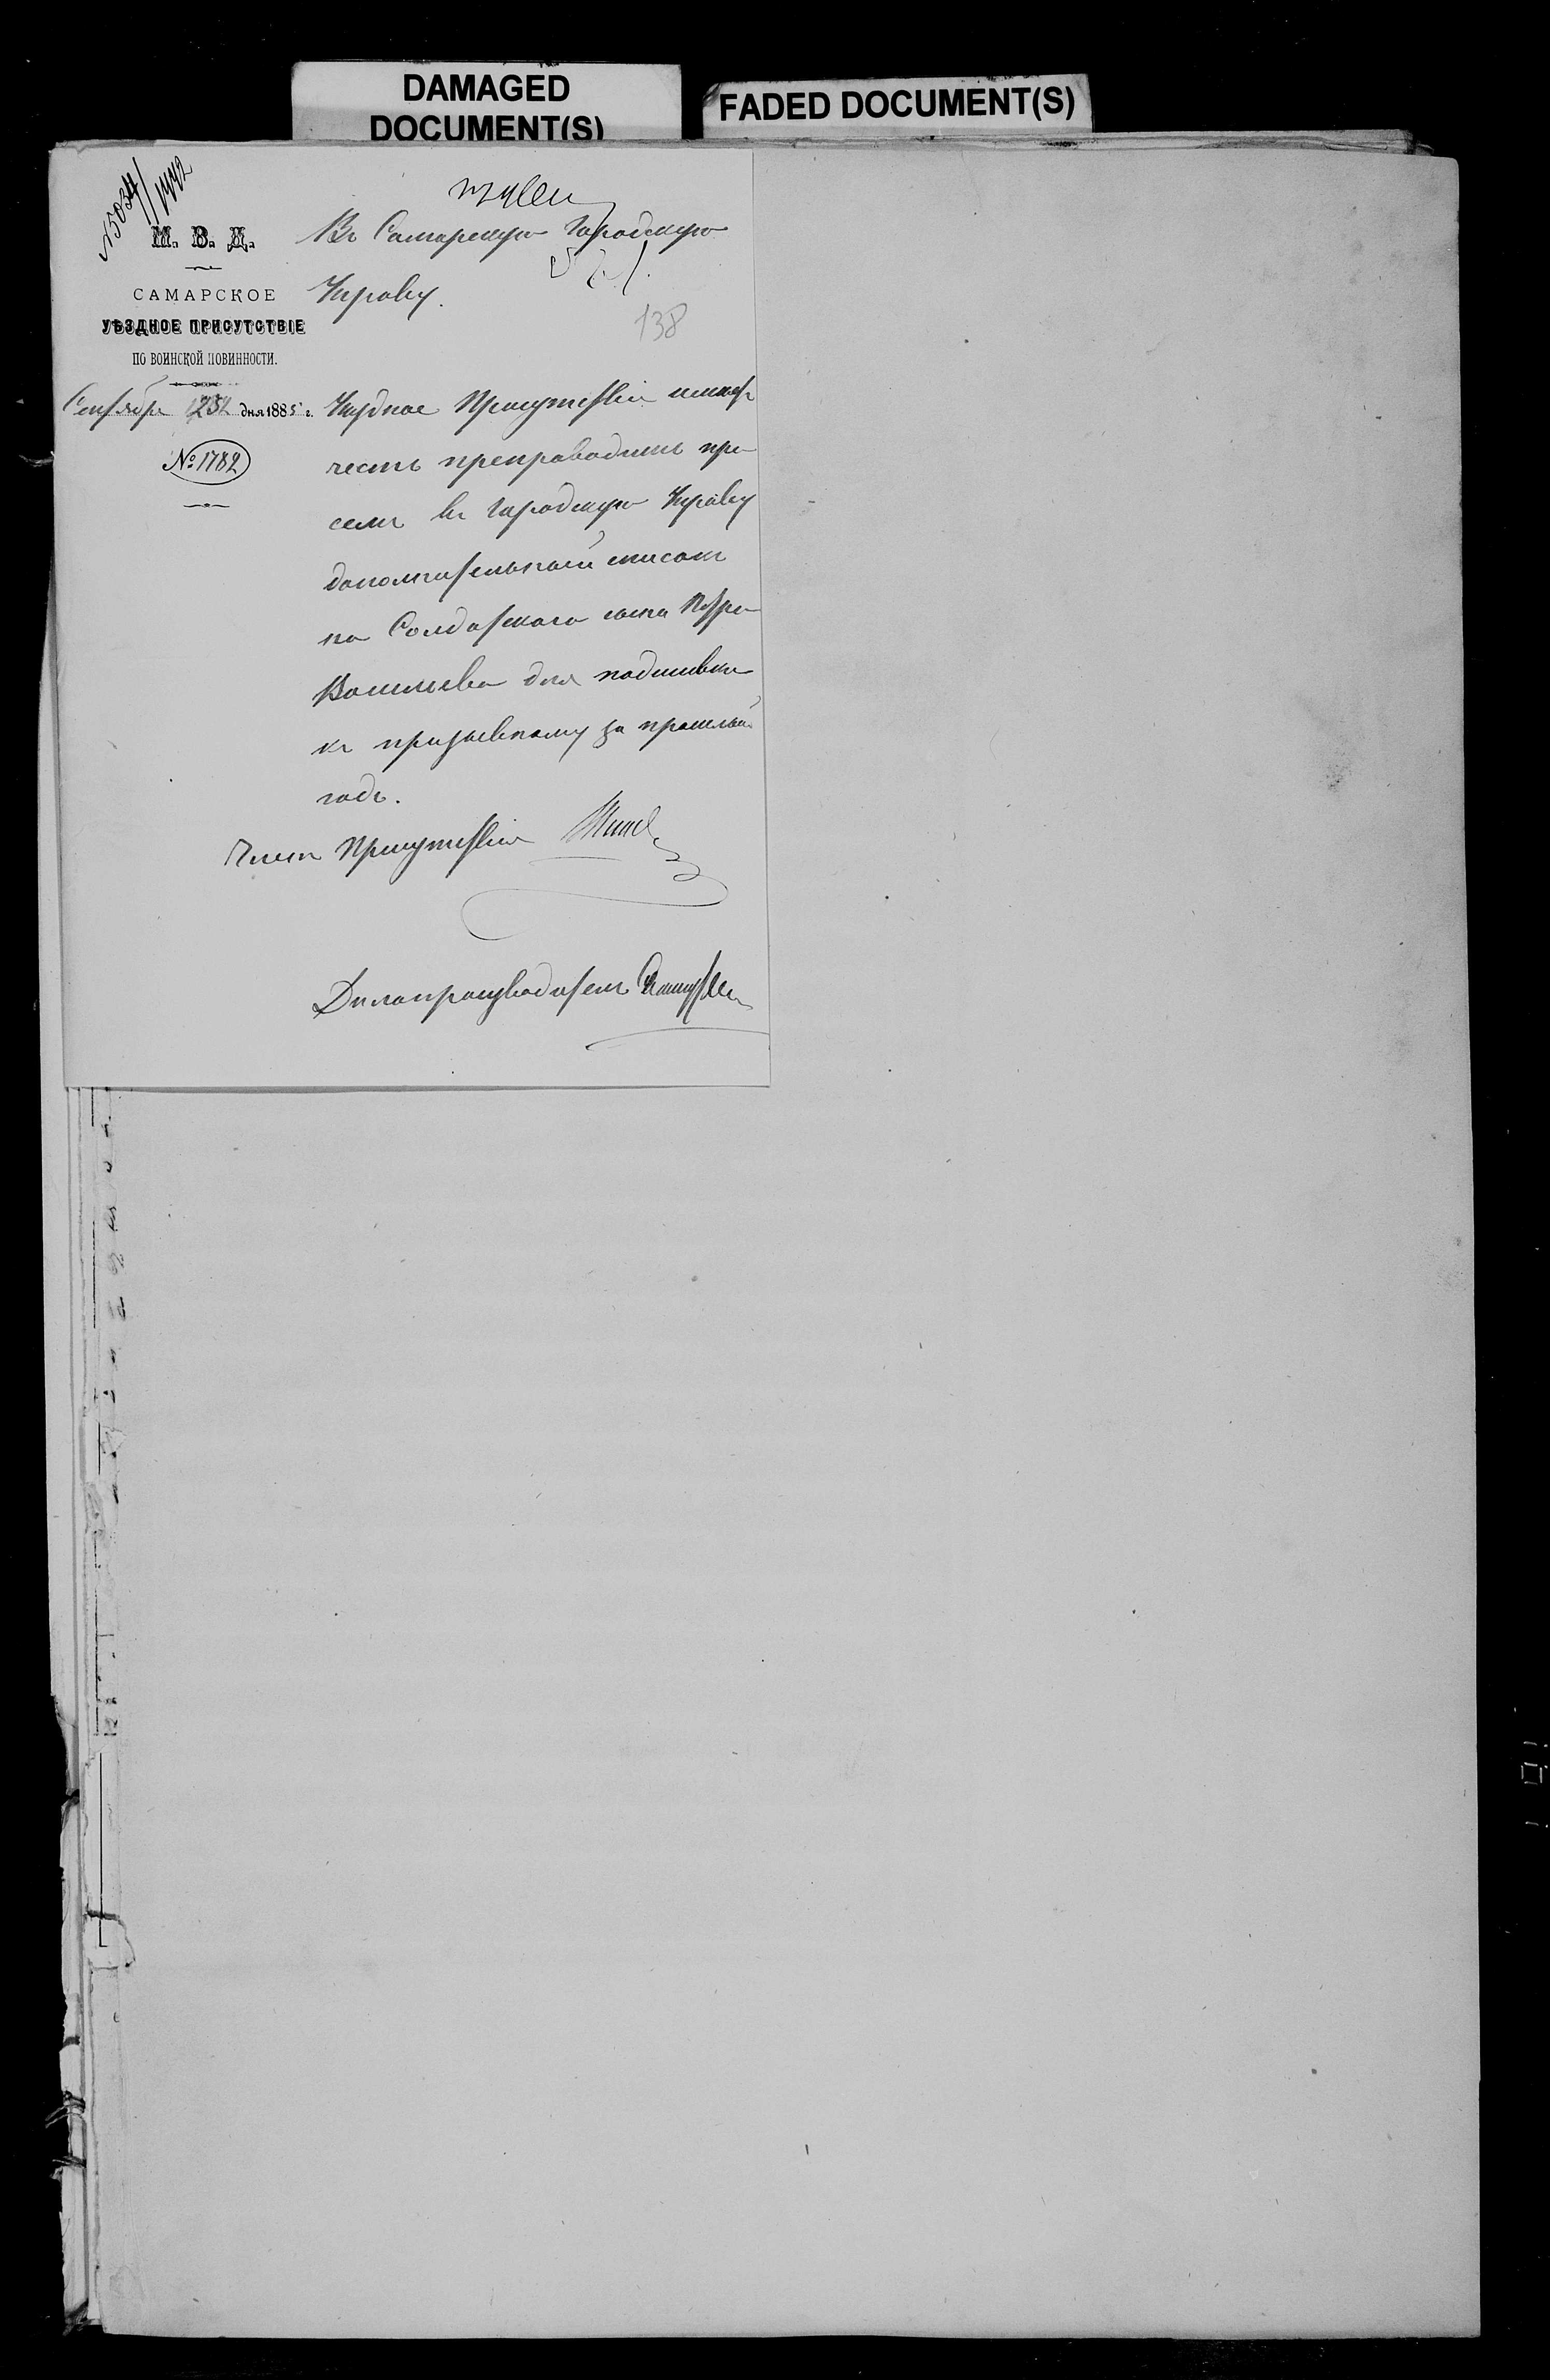 DAMAGED
DOCUMENT(S)
FADED DOCUMENT(S)
М. В. Д.
САМАРСКОЕ
УѢЗДНОЕ ПРИСУТСТВІЕ
ПО ВОИНСКОЙ ПОВИННОСТИ.
Сентября дня 1885 г.
№ 1782
Въ Самарскую Городскую
Управу.
138
Уѣздное Присутствіе имѣетъ
честь препроводить при
семъ въ Городскую Управу
дополнительный списокъ
на Солдатскаго сына Петра
Васильева для подшивки
къ призывному за прошлый
годъ.
Членъ Присутствія
Дѣлопроизводитель